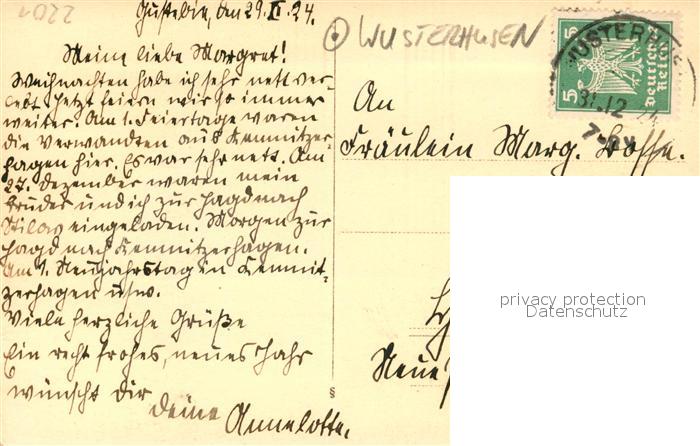 4022
Gustebin, den 29. XII. 24.
Meine liebe Margret!
Weihnachten habe ich sehr nett ver-
lebt. Jetzt feiern wir so immer
weiter. Am 1. Feiertage waren
die Verwandten aus Kemnitzer-
hagen hier. Es war sehr nett. Am
27. Dezember waren mein
Bruder und ich zur Jagd nach
eingeladen. Morgen zur
Jagd nach Kemnitzerhagen.
Am 1. Neujahrstag in Kemnit-
zerhagen usw.
Viele herzliche Grüße
Ein recht frohes, neues Jahr
wünscht Dir
Deine Annelotte.
WUSTERHUSEN
5 5
Deutsches Reich
WUSTERHUSEN
31.12
An
Fräulein Marg. Bosse.
Neue
§
privacy protection
Datenschutz